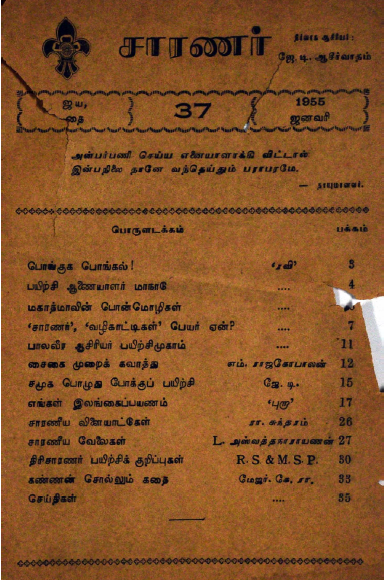 சாரணர்
நிர்வாக ஆசிரியர் :
ஜே. டி. ஆசீர்வாதம்
ஜய,
தை
37
1955
ஜனவரி
அன்பர்பணி செய்ய எனையாளாக்கி விட்டால்
இன்பநிலை தானே வந்தெய்தும் பராபரமே.
— தாயுமானவர்.
பொருளடக்கம் பக்கம்
பொங்குக பொங்கல் ! ‘ரவி’ 3
பயிற்சி ஆணையாளர் மாகாடே .... 4
மகாத்மாவின் பொன்மொழிகள் ....
‘சாரணர்’, ‘வழிகாட்டிகள்’ பெயர் ஏன் ? .... 7
பாலவீர ஆசிரியர் பயிற்சிமுகாம் .... 11
சைகை முறைக் கவாத்து எம். ராஜகோபாலன் 12
சமூக பொழுது போக்குப் பயிற்சி ஜே. டி. 15
எங்கள் இலங்கைப்பயணம் ‘புரூ’ 17
சாரணீய விளையாட்கேள் ரா. சுந்தரம் 26
சாரணீய வேலைகள் L. அஸ்வத்தநாராயணன் 27
திரிசாரணர் பயிற்சிக் குறிப்புகள் R. S. & M. S. P. 30
கண்ணன் சொல்லும் கதை மேஜர். கே. ரா, 33
செய்திகள் .... 35